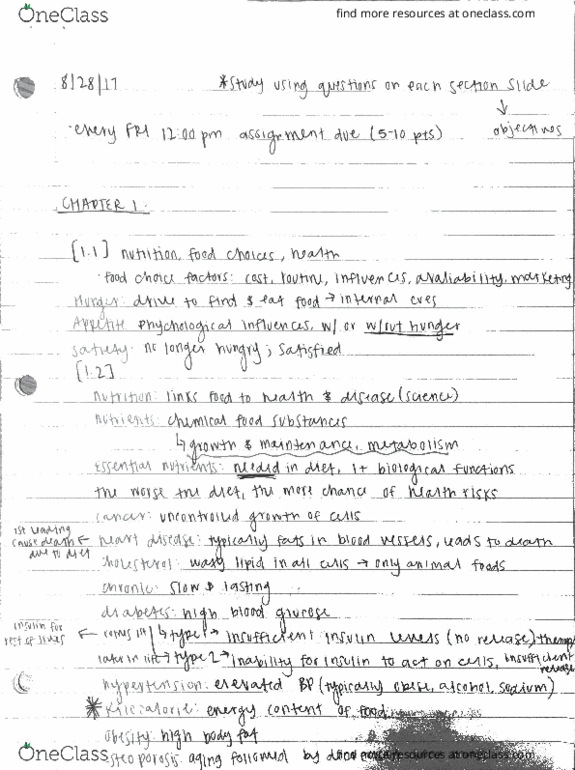 OneClass
find more resources at oneclass.com
8/28/17 *Study using questions on each section slide
↓
·every FRI 12:00 pm assignment due (5-10 pts) objectives
CHAPTER 1:
[1.1] nutrition, food choices, health
·food choice factors: cost, routine, influences, avaliability, marketing
Hunger: drive to find & eat food → internal cues
Appetite phychological influences, w/ or w/out hunger
satiety: no longer hungry; satisfied
[1.2]
nutrition: links food to health & disease (science)
nutrients: chemical food substances
↳ growth & maintenance, metabolism
Essential nutrients: needed in diet, 1+ biological functions
the worse the diet, the more chance of health risks
cancer: uncontrolled growth of cells
1st leading cause death due to diet ← heart disease: typically fats in blood vessels, leads to death
cholesterol: waxy lipid in all cells → only animal foods
chronic: slow & lasting
diabetes: high blood glucose
insulin for rest of lives ← ↳ type 1 → insufficient insulin levels (no release)
later in life → type 2 → inability for insulin to act on cells, insufficient release
hypertension: elevated BP (typically obese, alcohol, sodium)
*Kilocalorie: energy content of food
obesity: high body fat
osteoporosis: aging followed by
OneClass
resources at oneclass.com